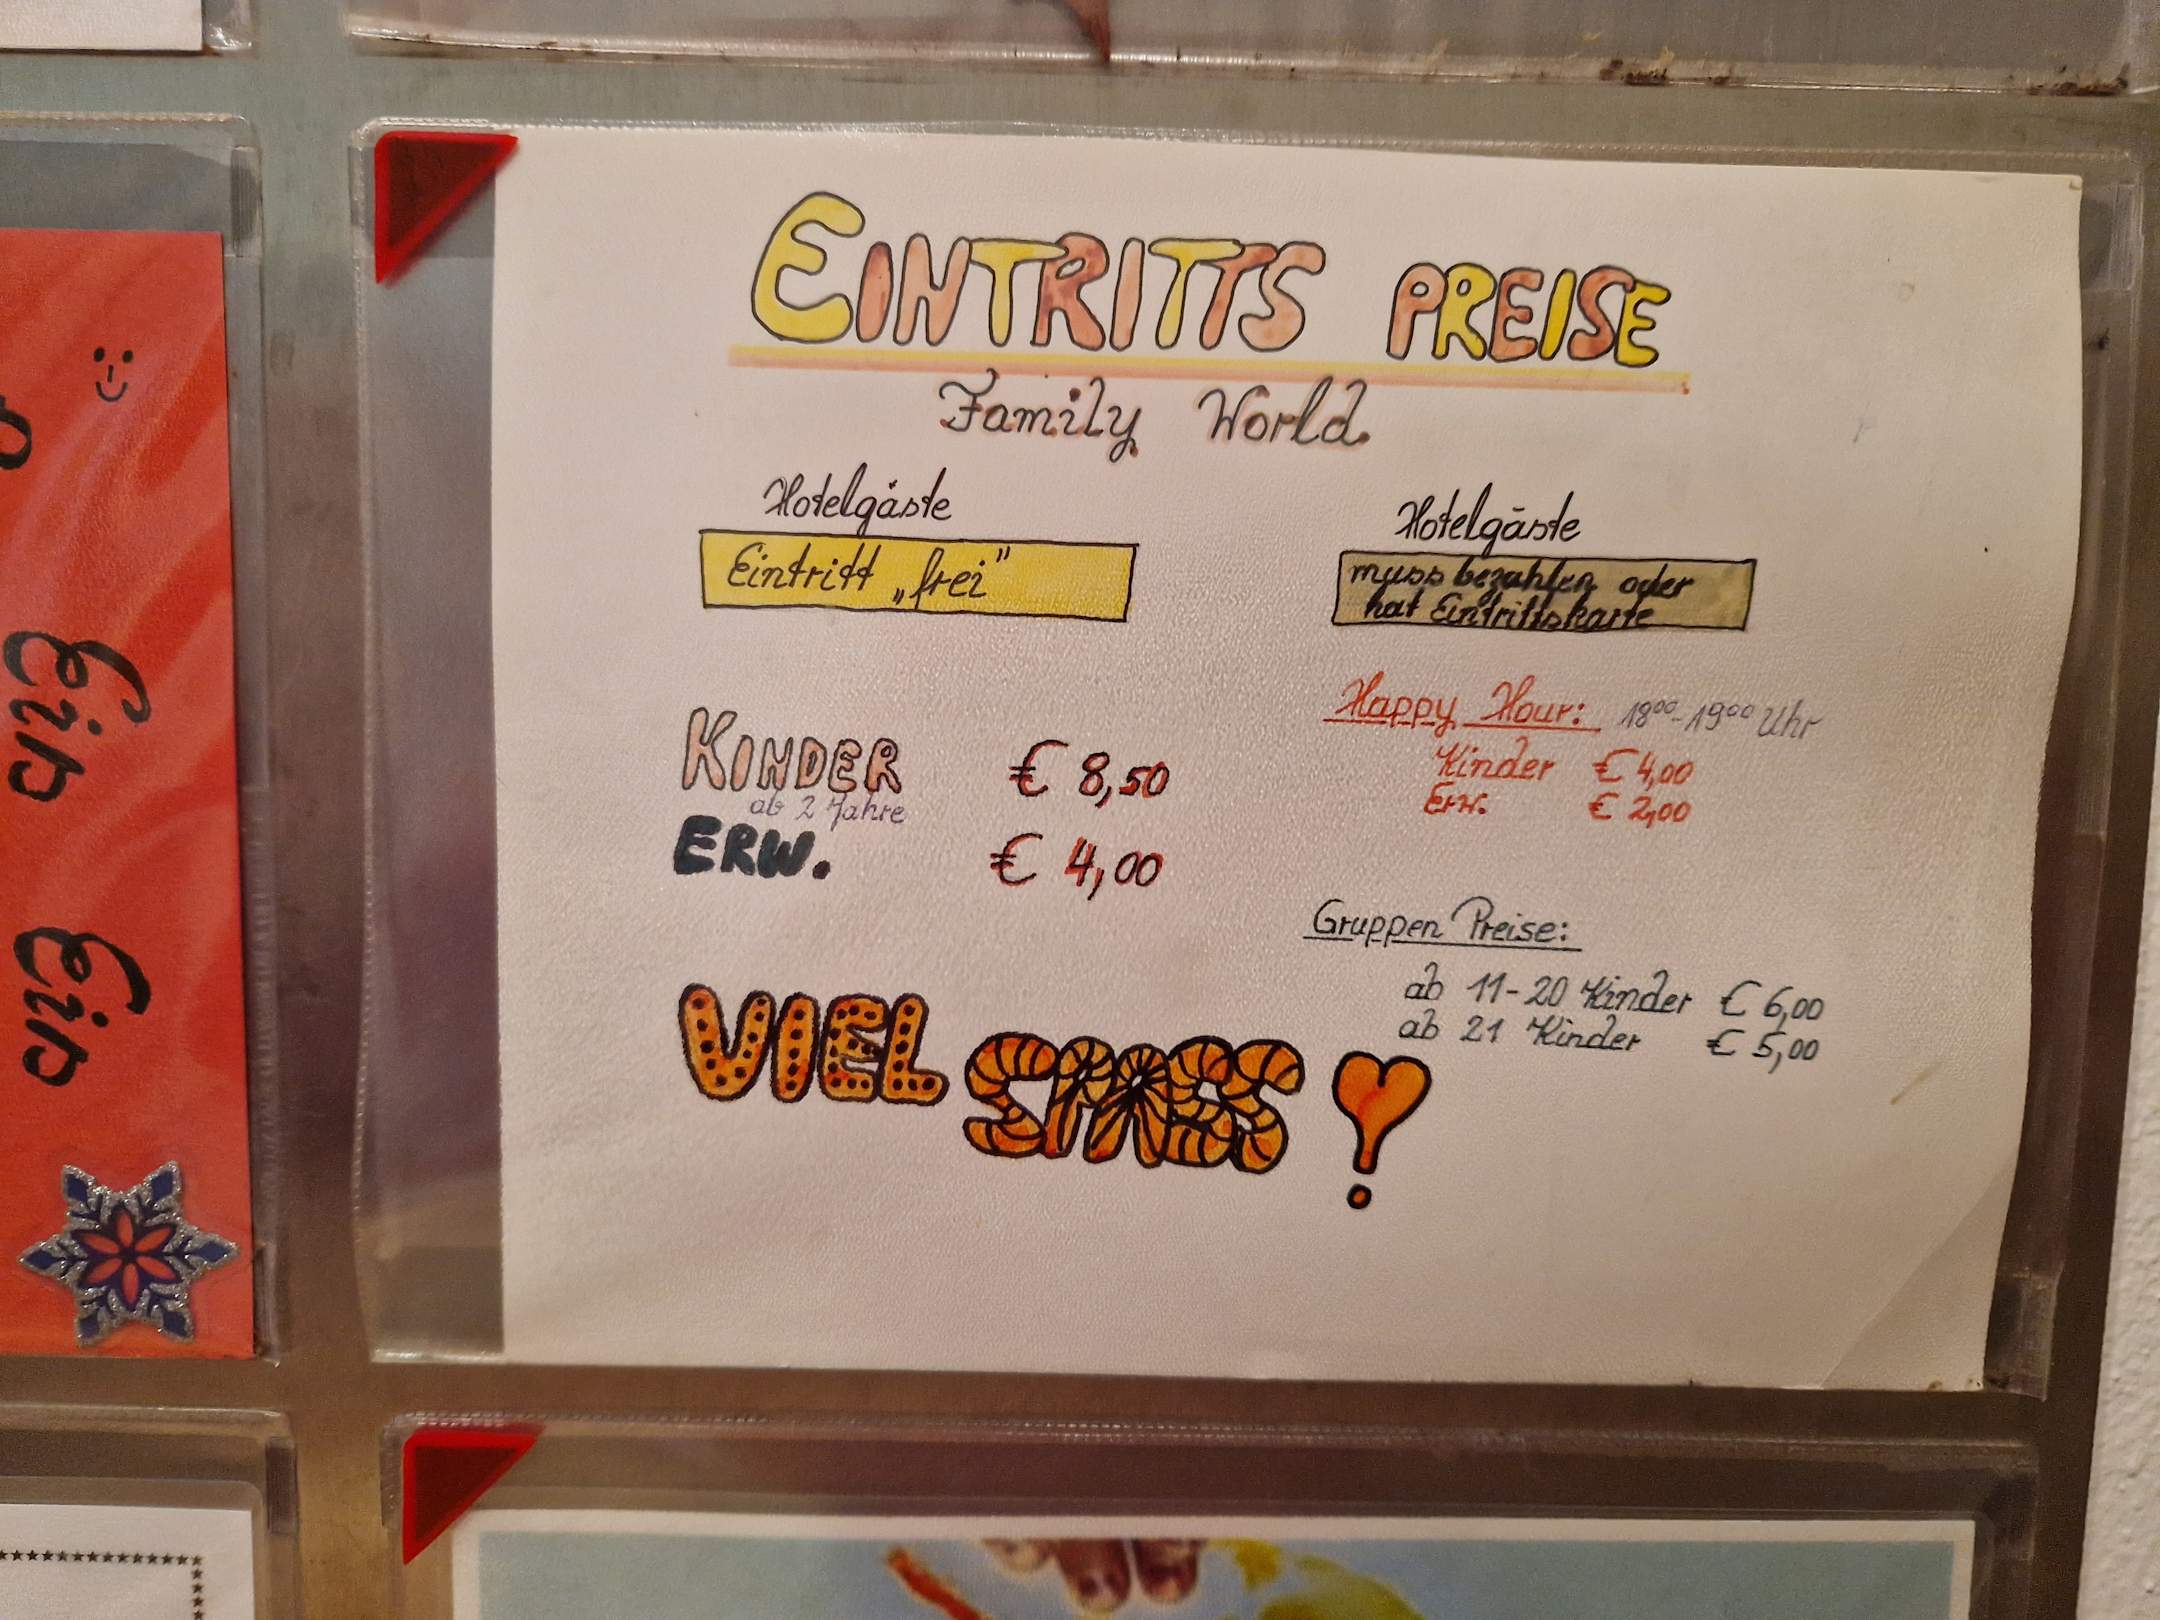 EINTRITTS PREISE
Family World
Hotelgäste
Eintritt „frei"
Hotelgäste
muss bezahlen oder
hat Eintrittskarte
KINDER € 8,50
ab 2 Jahre
ERW. € 4,00
Happy Hour: 18⁰⁰-19⁰⁰ Uhr
Kinder € 4,00
Erw. € 2,00
Gruppen Preise:
ab 11-20 Kinder € 6,00
ab 21 Kinder € 5,00
VIEL SPASS!
Eis
Eis